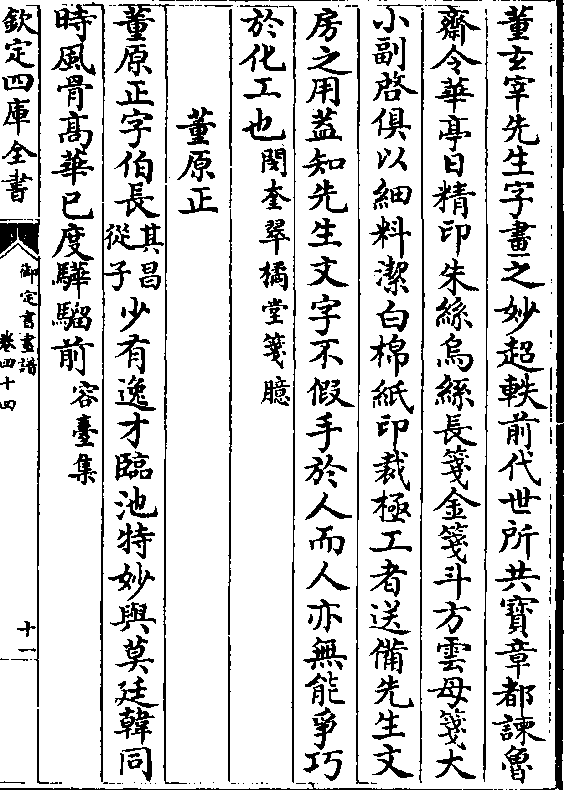 董玄宰先生字畫之妙超軼前代世所共寶章都諫魯
齋令華亭日精印朱絲烏絲長箋金箋斗方雲母箋大
小副啓俱以細料潔白棉紙印裁極工者送備先生文
房之用葢知先生文字不假手於人而人亦無能爭巧
於化工也閔奎翠橘堂箋臆
董原正
董原正字伯長其昌從子少有逸才臨池特妙與莫廷韓同
時風骨髙華已度驊騮前容臺集
欽定四庫全書
御定書畫譜
卷四十四
十一